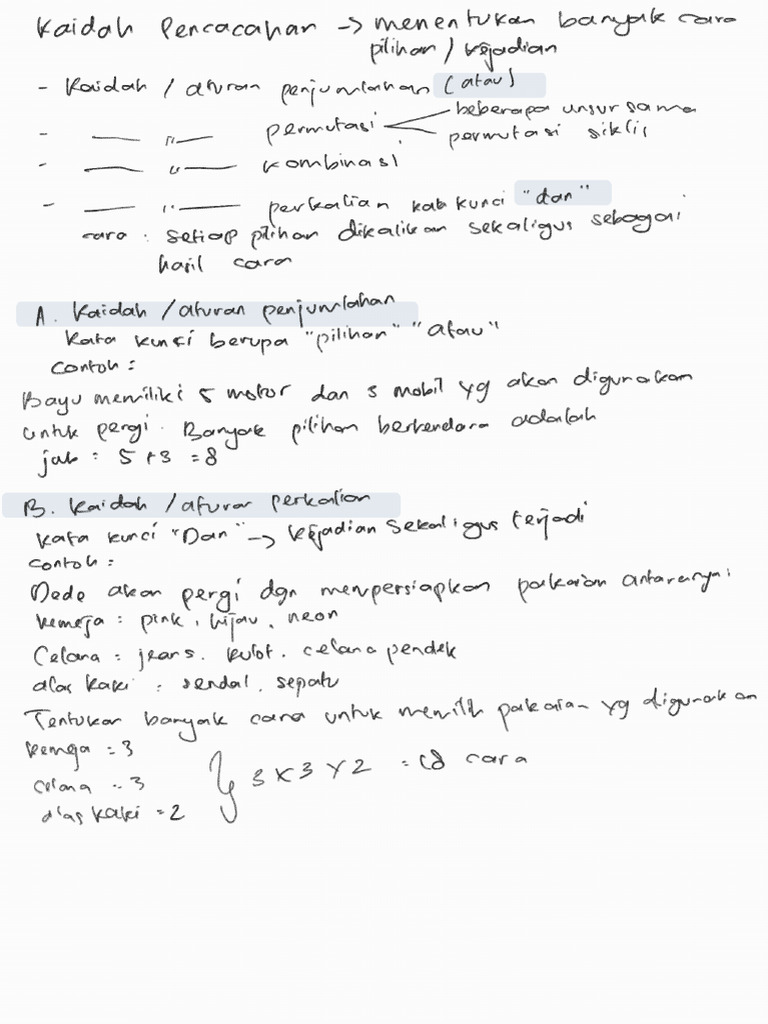 Kaidah Pencacahan -> menentukan banyak cara
pilihan / kejadian
- Kaidah / aturan penjumlahan (atau)
- —— " —— permutasi beberapa unsur sama
permutasi siklis
- —— " —— kombinasi
- —— " —— perkalian kata kunci "dan"
cara : setiap pilihan dikalikan sekaligus sebagai
hasil cara
A. Kaidah / aturan penjumlahan
Kata kunci berupa "pilihan" "atau"
contoh :
Bayu memiliki 5 motor dan 3 mobil yg akan digunakan
untuk pergi. Banyak pilihan berkendara adalah
jab : 5 + 3 = 8
B. Kaidah / aturan perkalian
Kata kunci "Dan" -> kejadian sekaligus terjadi
contoh :
Dede akan pergi dgn mempersiapkan pakaian antaranya :
kemeja : pink, hijau, neon
Celana : jeans, kulot, celana pendek
alas kaki : sendal, sepatu
Tentukan banyak cara untuk memilih pakaian yg digunakan
kemeja = 3
celana = 3
alas kaki = 2
3 x 3 x 2 = 18 cara